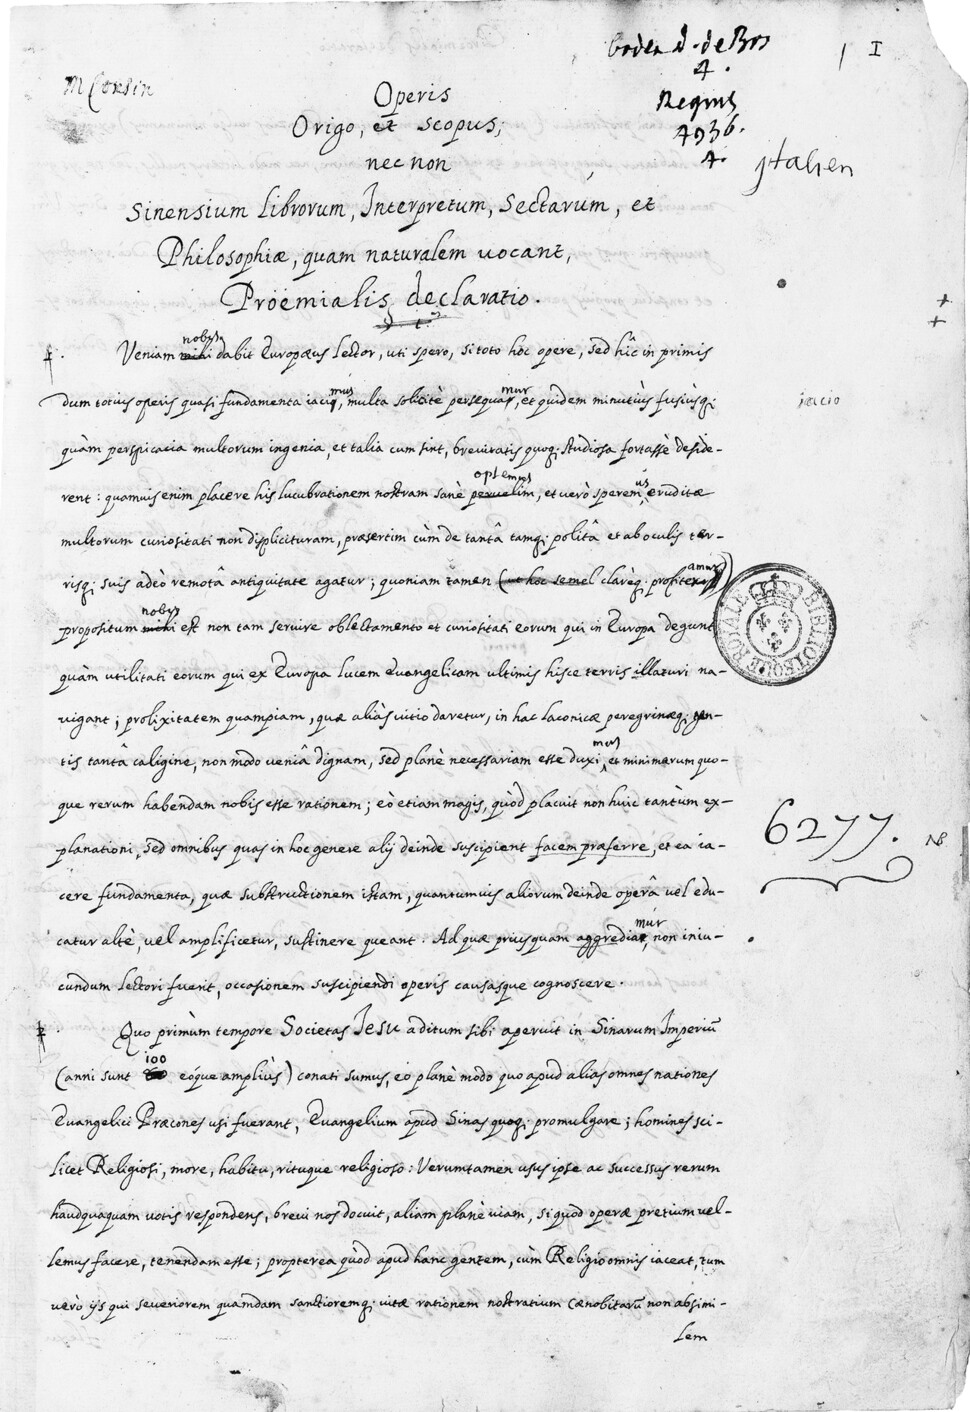 M Corsin
4.
4936.
4.
1 I
Italien
Operis
Origo, et scopus;
nec non
Sinensium Librorum, Interpretum, Sectarum, et
Philosophiæ, quam naturalem uocant,
Proëmialis declaratio.
nobis
Veniam mihi dabit Europæus Lector, uti spero, si toto hoc opere, sed hîc in primis
mus mur
dum totius operis quasi fundamenta iacio, multa solicitè persequar, et quidem minutiùs fusiùsq;
iacio
quàm perspicacia multorum ingenia, et talia cum sint, breuitatis quoq; studiosa fortassè deside-
optemus
rent: quamuis enim placere his lucubrationem nostram sanè peruelim, et uerò speremus eruditæ
multorum curiositati non displicituram, præsertim cùm de tantâ tamq; politâ et ab oculis ter-
amur
risq; suis adeò remotâ antiquitate agatur; quoniam tamen (ut hoc semel clarèq; profitear)
nobis
propositum mihi est non tam seruire oblectamento et curiositati eorum qui in Europa degunt
BIBLIOTHEQUE ROYALE
quàm utilitati eorum qui ex Europa Lucem Euangelicam ultimis hisce terris illaturi na-
uigant; prolixitatem quampiam, quæ aliàs uitio daretur, in hac laconicæ peregrinæq; gen-
mus
tis tantâ caligine, non modo ueniâ dignam, sed planè necessariam esse duxi, et minimarum quo-
que rerum habendam nobis esse rationem; eò etiam magis, quòd placuit non huic tantùm ex-
6277. NB
planationi, sed omnibus quas in hoc genere alij deinde suscipient facem præferre, et ea ia-
cere fundamenta, quæ substructionem istam, quantumuis aliorum deinde operâ uel edu-
mur
catur altè, uel amplificetur, sustinere queant. Ad quæ priusquam aggrediar, non iniu-
cundum Lectori fuerit, occasionem suscipiendi operis causasque cognoscere.
Quo primùm tempore Societas Jesu aditum sibi aperuit in Sinarum Imperiũ
100
(anni sunt eóque ampliùs) conati sumus, eo planè modo quo apud alias omnes nationes
Euangelici Præcones usi fuerant, Euangelium apud Sinas quoq; promulgare; homines sci-
licet Religiosi, more, habitu, rituque religioso: Verumtamen usus ipse ac successus rerum
haudquaquam uotis respondens, breui nos docuit, aliam planè uiam, siquòd operæ pretium uel-
lemus facere, tenendam esse; propterea quòd apud hanc gentem, cùm Religio omnis iaceat, tum
uerò ijs qui seueriorem quamdam sanctioremq; uitæ rationem nostratium Cænobitarũ non absimi-
lem